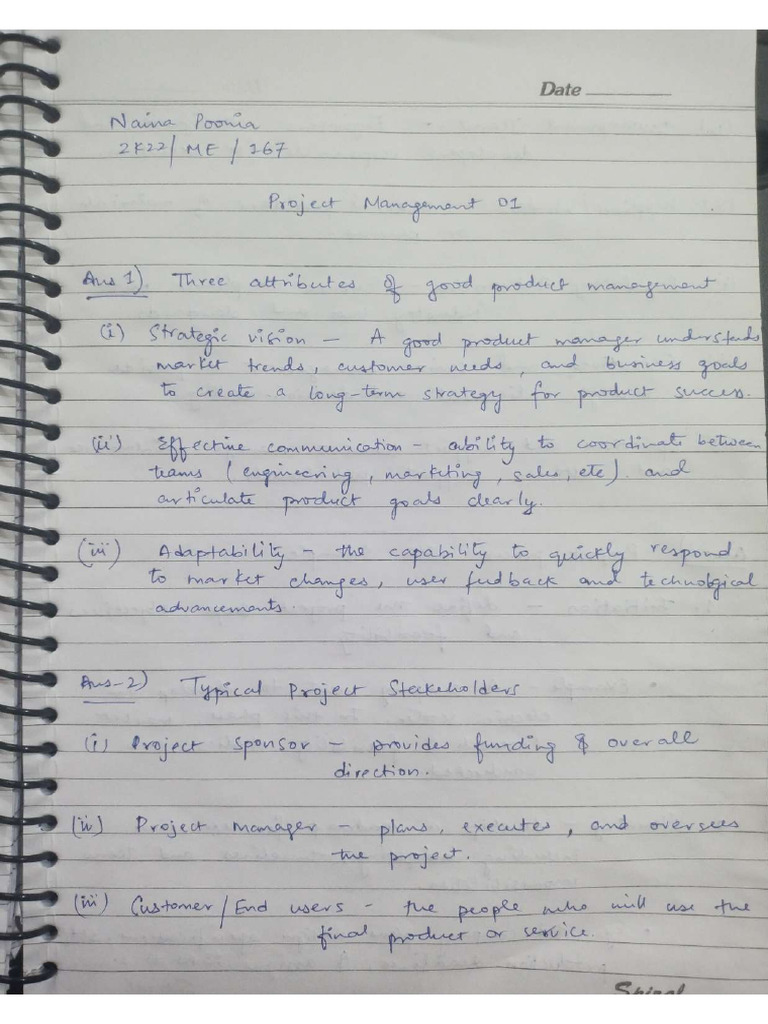 Date
Naina Poonia
2K22/ME/167
Project Management 01
Ans 1) Three attributes of good product management
(i) Strategic vision – A good product manager understands
market trends, customer needs, and business goals
to create a long-term strategy for product success.
(ii) Effective communication – ability to coordinate between
teams (engineering, marketing, sales, etc) and
articulate product goals clearly.
(iii) Adaptability – the capability to quickly respond
to market changes, user feedback and technological
advancements.
Ans-2) Typical Project Stakeholders
(i) Project Sponsor – provides funding & overall
direction.
(ii) Project manager – plans, executes, and oversees
the project.
(iii) Customer/End users – the people who will use the
final product or service.
Spiral